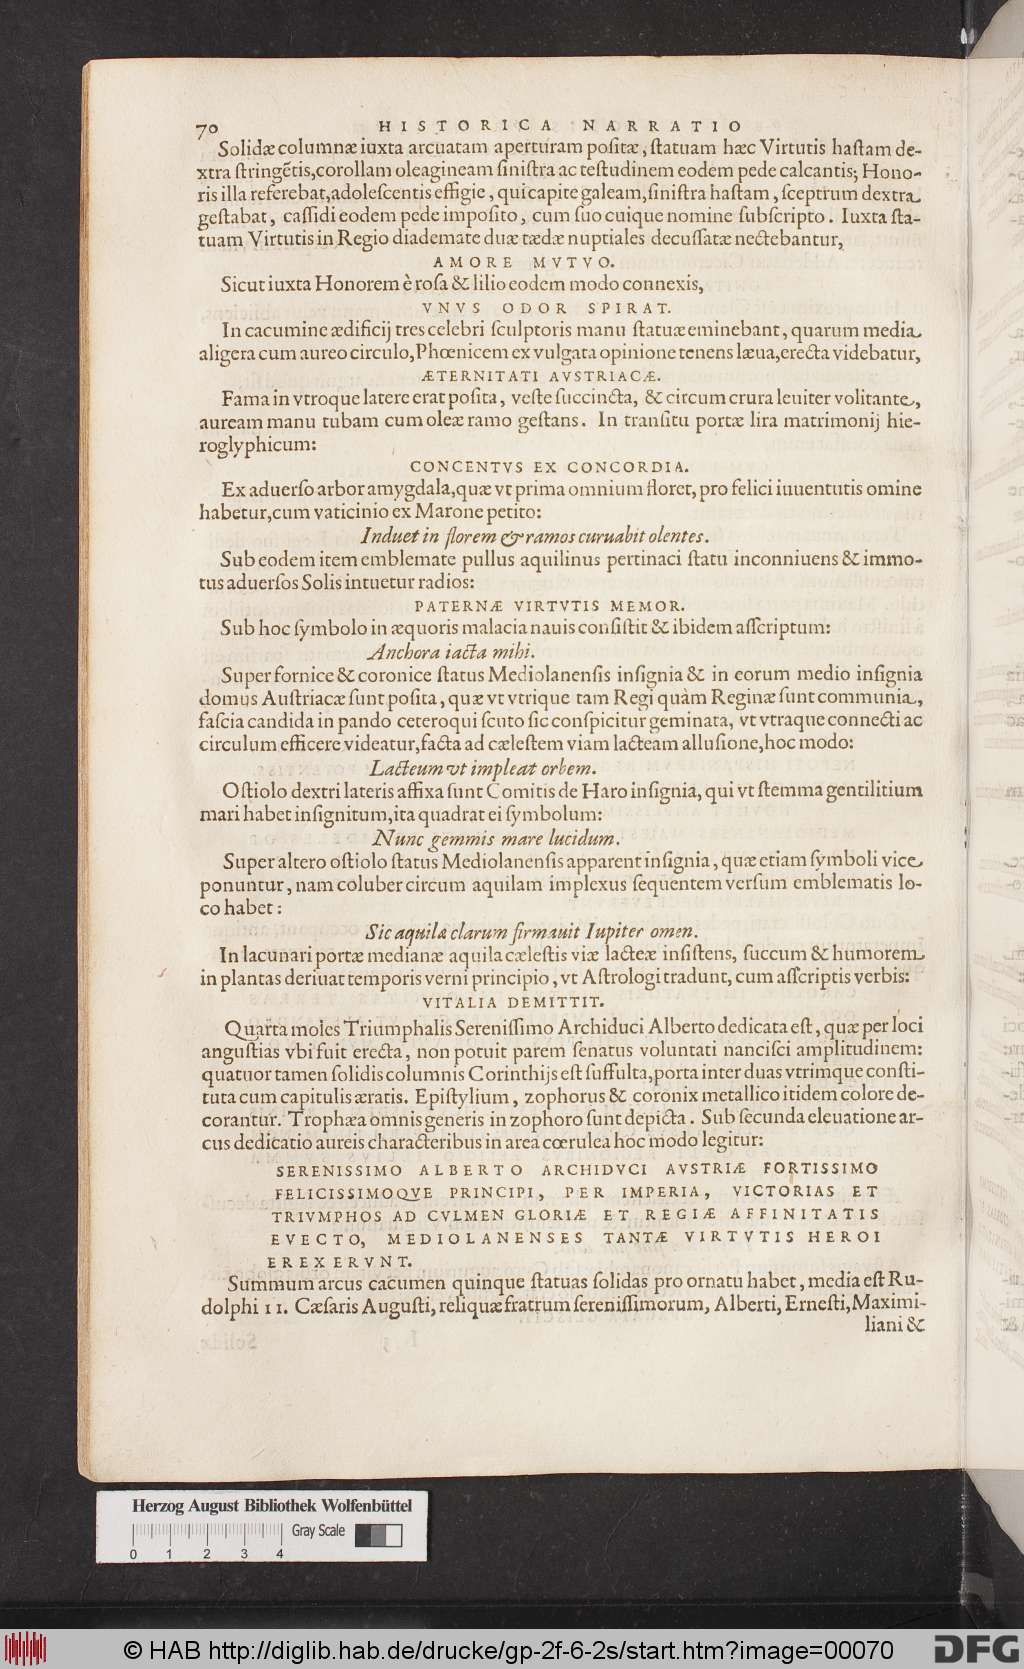 70 HISTORICA NARRATIO
Solidæ columnæ iuxta arcuatam aperturam positæ, statuam hæc Virtutis hastam de-
xtra stringẽtis, corollam oleagineam sinistra ac testudinem eodem pede calcantis; Hono-
ris illa referebat, adolescentis effigie, qui capite galeam, sinistra hastam, sceptrum dextra
gestabat, cassidi eodem pede imposito, cum suo cuique nomine subscripto. Iuxta sta-
tuam Virtutis in Regio diademate duæ tædæ nuptiales decussatæ nectebantur,
AMORE MVTVO.
Sicut iuxta Honorem è rosa & lilio eodem modo connexis,
VNVS ODOR SPIRAT.
In cacumine ædificij tres celebri sculptoris manu statuæ eminebant, quarum media
aligera cum aureo circulo, Phœnicem ex vulgata opinione tenens læua, erecta videbatur,
ÆTERNITATI AVSTRIACÆ.
Fama in vtroque latere erat posita, veste succincta, & circum crura leuiter volitante,
auream manu tubam cum oleæ ramo gestans. In transitu portæ lira matrimonij hie-
roglyphicum:
CONCENTVS EX CONCORDIA.
Ex aduerso arbor amygdala, quæ vt prima omnium floret, pro felici iuuentutis omine
habetur, cum vaticinio ex Marone petito:
Induet in florem & ramos curuabit olentes.
Sub eodem item emblemate pullus aquilinus pertinaci statu inconniuens & immo-
tus aduersos Solis intuetur radios:
PATERNÆ VIRTVTIS MEMOR.
Sub hoc symbolo in æquoris malacia nauis consistit & ibidem asscriptum:
Anchora iacta mihi.
Super fornice & coronice status Mediolanensis insignia & in eorum medio insignia
domus Austriacæ sunt posita, quæ vt vtrique tam Regi quàm Reginæ sunt communia,
fascia candida in pando ceteroqui scuto sic conspicitur geminata, vt vtraque connecti ac
circulum efficere videatur, facta ad cælestem viam lacteam allusione, hoc modo:
Lacteum vt impleat orbem.
Ostiolo dextri lateris affixa sunt Comitis de Haro insignia, qui vt stemma gentilitium
mari habet insignitum, ita quadrat ei symbolum:
Nunc gemmis mare lucidum.
Super altero ostiolo status Mediolanensis apparent insignia, quæ etiam symboli vice
ponuntur, nam coluber circum aquilam implexus sequentem versum emblematis lo-
co habet:
Sic aquila clarum firmauit Iupiter omen.
In lacunari portæ medianæ aquila cælestis viæ lacteæ insistens, succum & humorem
in plantas deriuat temporis verni principio, vt Astrologi tradunt, cum asscriptis verbis:
VITALIA DEMITTIT.
Quarta moles Triumphalis Serenissimo Archiduci Alberto dedicata est, quæ per loci
angustias vbi fuit erecta, non potuit parem senatus voluntati nancisci amplitudinem:
quatuor tamen solidis columnis Corinthijs est suffulta, porta inter duas vtrimque consti-
tuta cum capitulis æratis. Epistylium, zophorus & coronix metallico itidem colore de-
corantur. Trophæa omnis generis in zophoro sunt depicta. Sub secunda eleuatione ar-
cus dedicatio aureis characteribus in area cœrulea hoc modo legitur:
SERENISSIMO ALBERTO ARCHIDVCI AVSTRIÆ FORTISSIMO
FELICISSIMOQVE PRINCIPI, PER IMPERIA, VICTORIAS ET
TRIVMPHOS AD CVLMEN GLORIÆ ET REGIÆ AFFINITATIS
EVECTO, MEDIOLANENSES TANTÆ VIRTVTIS HEROI
EREXERVNT.
Summum arcus cacumen quinque statuas solidas pro ornatu habet, media est Ru-
dolphi II. Cæsaris Augusti, reliquæ fratrum serenissimorum, Alberti, Ernesti, Maximi-
liani &
Herzog August Bibliothek Wolfenbüttel
Gray Scale
0 1 2 3 4
© HAB http://diglib.hab.de/drucke/gp-2f-6-2s/start.htm?image=00070
DFG